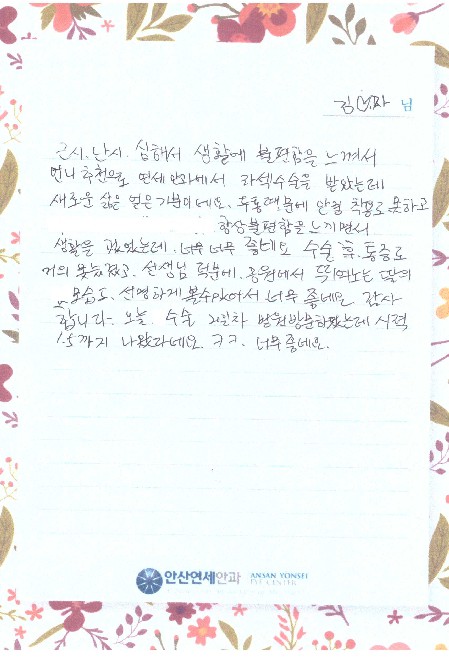 김♡자 님
근시.난시. 심해서 생활에 불편함을 느껴서
언니 추천으로 연세안과에서 라섹수술을 받았는데
새로운 삶을 얻은 기분이네요. 두통때문에 안경 착용도 못하고
항상불편함을 느끼면서
생활을 했었는데. 너무 너무 좋네요 수술 후. 통증도
거의 못느꼈고. 선생님 덕분에. 공원에서 뛰어노는 딸의
모습도. 선명하게 볼수있어서 너무 좋네요 감사
합니다. 오늘. 수술 2일차 병원방문하였는데 시력
1.5까지 나왔다네요. ㅋㅋ. 너무좋네요.
안산연세안과 ANSAN YONSEI
EYE CENTER